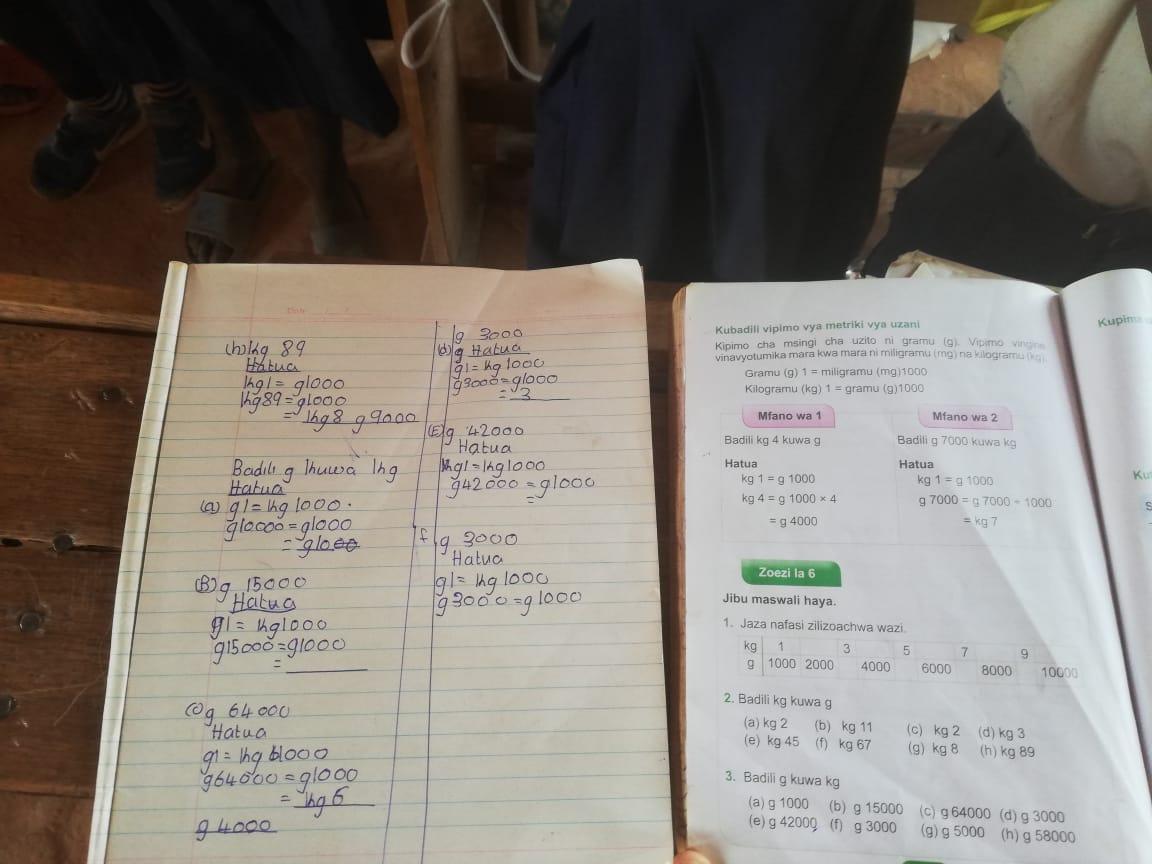 Date
(h) kg 89
Hatua
kg1 = g1000
kg89 = g1000
= kg8 g9000
Badili g kuwa kg
Hatua
(a) g1 = kg 1000.
g10000 = g1000
(B) g 15000
Hatua
g1 = kg1000
g15000 = g1000
=
(C) g 64000
Hatua
g64000 = g1000
= kg6
g 4000
g 3000
(d) g Hatua
g1 = kg 1000
g3000 = g1000
= 3
(E) g 42000
Hatua
kg1 = kg1000
g42000 = g1000
=
f g 3000
Hatua
g1 = kg 1000
g3000 = g1000
Kubadili vipimo vya metriki vya uzani
Kipimo cha msingi cha uzito ni gramu (g). Vipimo vingine
vinavyotumika mara kwa mara ni miligramu (mg) na kilogramu (kg).
Gramu (g) 1 = miligramu (mg)1000
Kilogramu (kg) 1 = gramu (g)1000
Mfano wa 1
Badili kg 4 kuwa g
Hatua
kg 1 = g 1000
kg 4 = g 1000 × 4
= g 4000
Mfano wa 2
Badili g 7000 kuwa kg
Hatua
kg 1 = g 1000
g 7000 = g 7000 ÷ 1000
= kg 7
Zoezi la 6
Jibu maswali haya.
1. Jaza nafasi zilizoachwa wazi.
kg 1 3 5 7 9
g 1000 2000 4000 6000 8000 10000
2. Badili kg kuwa g
(a) kg 2 (b) kg 11 (c) kg 2 (d) kg 3
(e) kg 45 (f) kg 67 (g) kg 8 (h) kg 89
3. Badili g kuwa kg
(a) g 1000 (b) g 15000 (c) g 64000 (d) g 3000
(e) g 42000 (f) g 3000 (g) g 5000 (h) g 58000